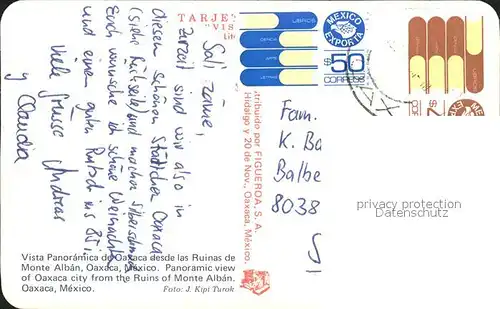 TARJE
"VIS
Sali zäme,
Zurzeit sind wir also in
diesem schönen Städtchen Oaxaca
(siehe Rückseite) und machen
Euch wünsche ich schöne Weihnachten
und eine guten Rutsch ins 85!
Viele Grüsse Andreas
y Claudia
tribuido por FIGUEROA, S. A.
Hidalgo y 20 de Nov., Oaxaca, México.
LIBROS
MEXICO
EXPORTA
$50
CORREOS
Fam.
K. Ba
Balbe
8038
privacy protection
Datenschutz
Vista Panorámica de Oaxaca desde las Ruinas de
Monte Albán, Oaxaca, México. Panoramic view
of Oaxaca city from the Ruins of Monte Albán.
Oaxaca, México. Foto: J. Kipi Turok